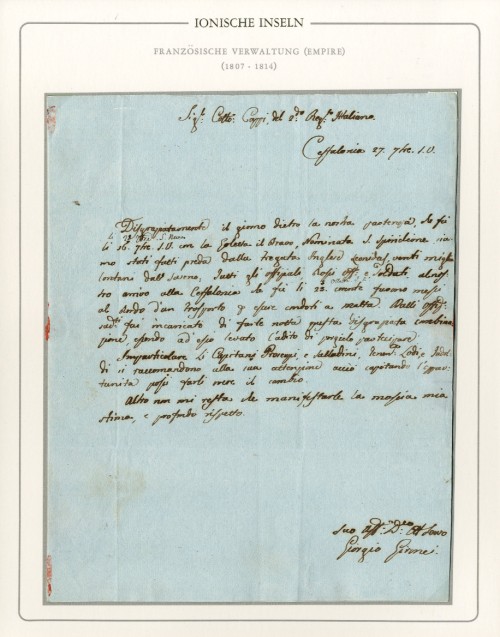 IONISCHE INSELN
FRANZÖSISCHE VERWALTUNG (EMPIRE)
(1807 - 1814)
Sigr. del 2do. Regto. Italiano
Ceffalonia 27. 7bre. 1.0.
Disgrapatamente il giorno dietro la nostra partenza, che fu
li 16. 7bre. 1.0. con la Goletta il Bravo, Nominata I. sia-
mo stati fatti preda dalla fregata Inglese venti migli
lontani dall' Tutti gli offiziali, Bassi Off. e Soldati, al nos-
tro arrivo alla Ceffalonia che fu li 22. corrte fuomo messi
al bordo d'un trasporto p esere condoti a malta. Dalli Offizi
fui incaricato di farle notto questa disgrapata combina
pione, esendo ad essi levato l'adito di
Imparticolare Li Capitani e Belladini, Tenen. Lodi, e
di si raccomandono alla sua attenzione acciò capitando l'oppor-
tunita posi farli mere il cambio.
Altro non mi resta che manifestarle la massia mia
stima, e profondo rispetto.
suo Afftmo. Dmo. Servo
Giorgio